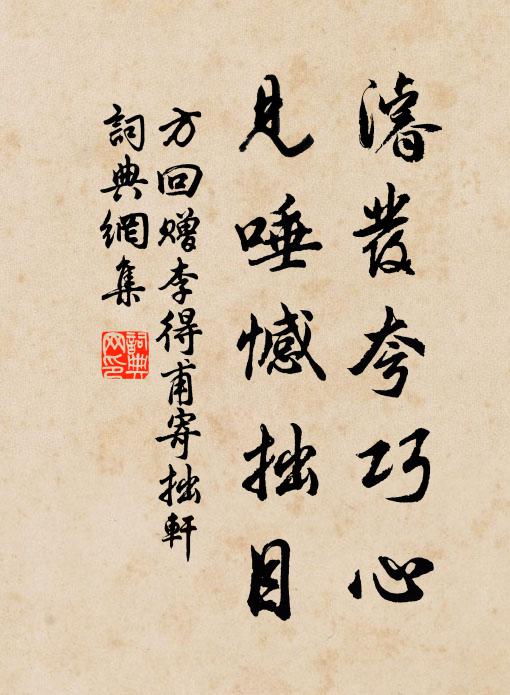 濬發夸巧心
見唾憾拙目
方回赠李得甫寄拙軒
詞典網集
詞典网印